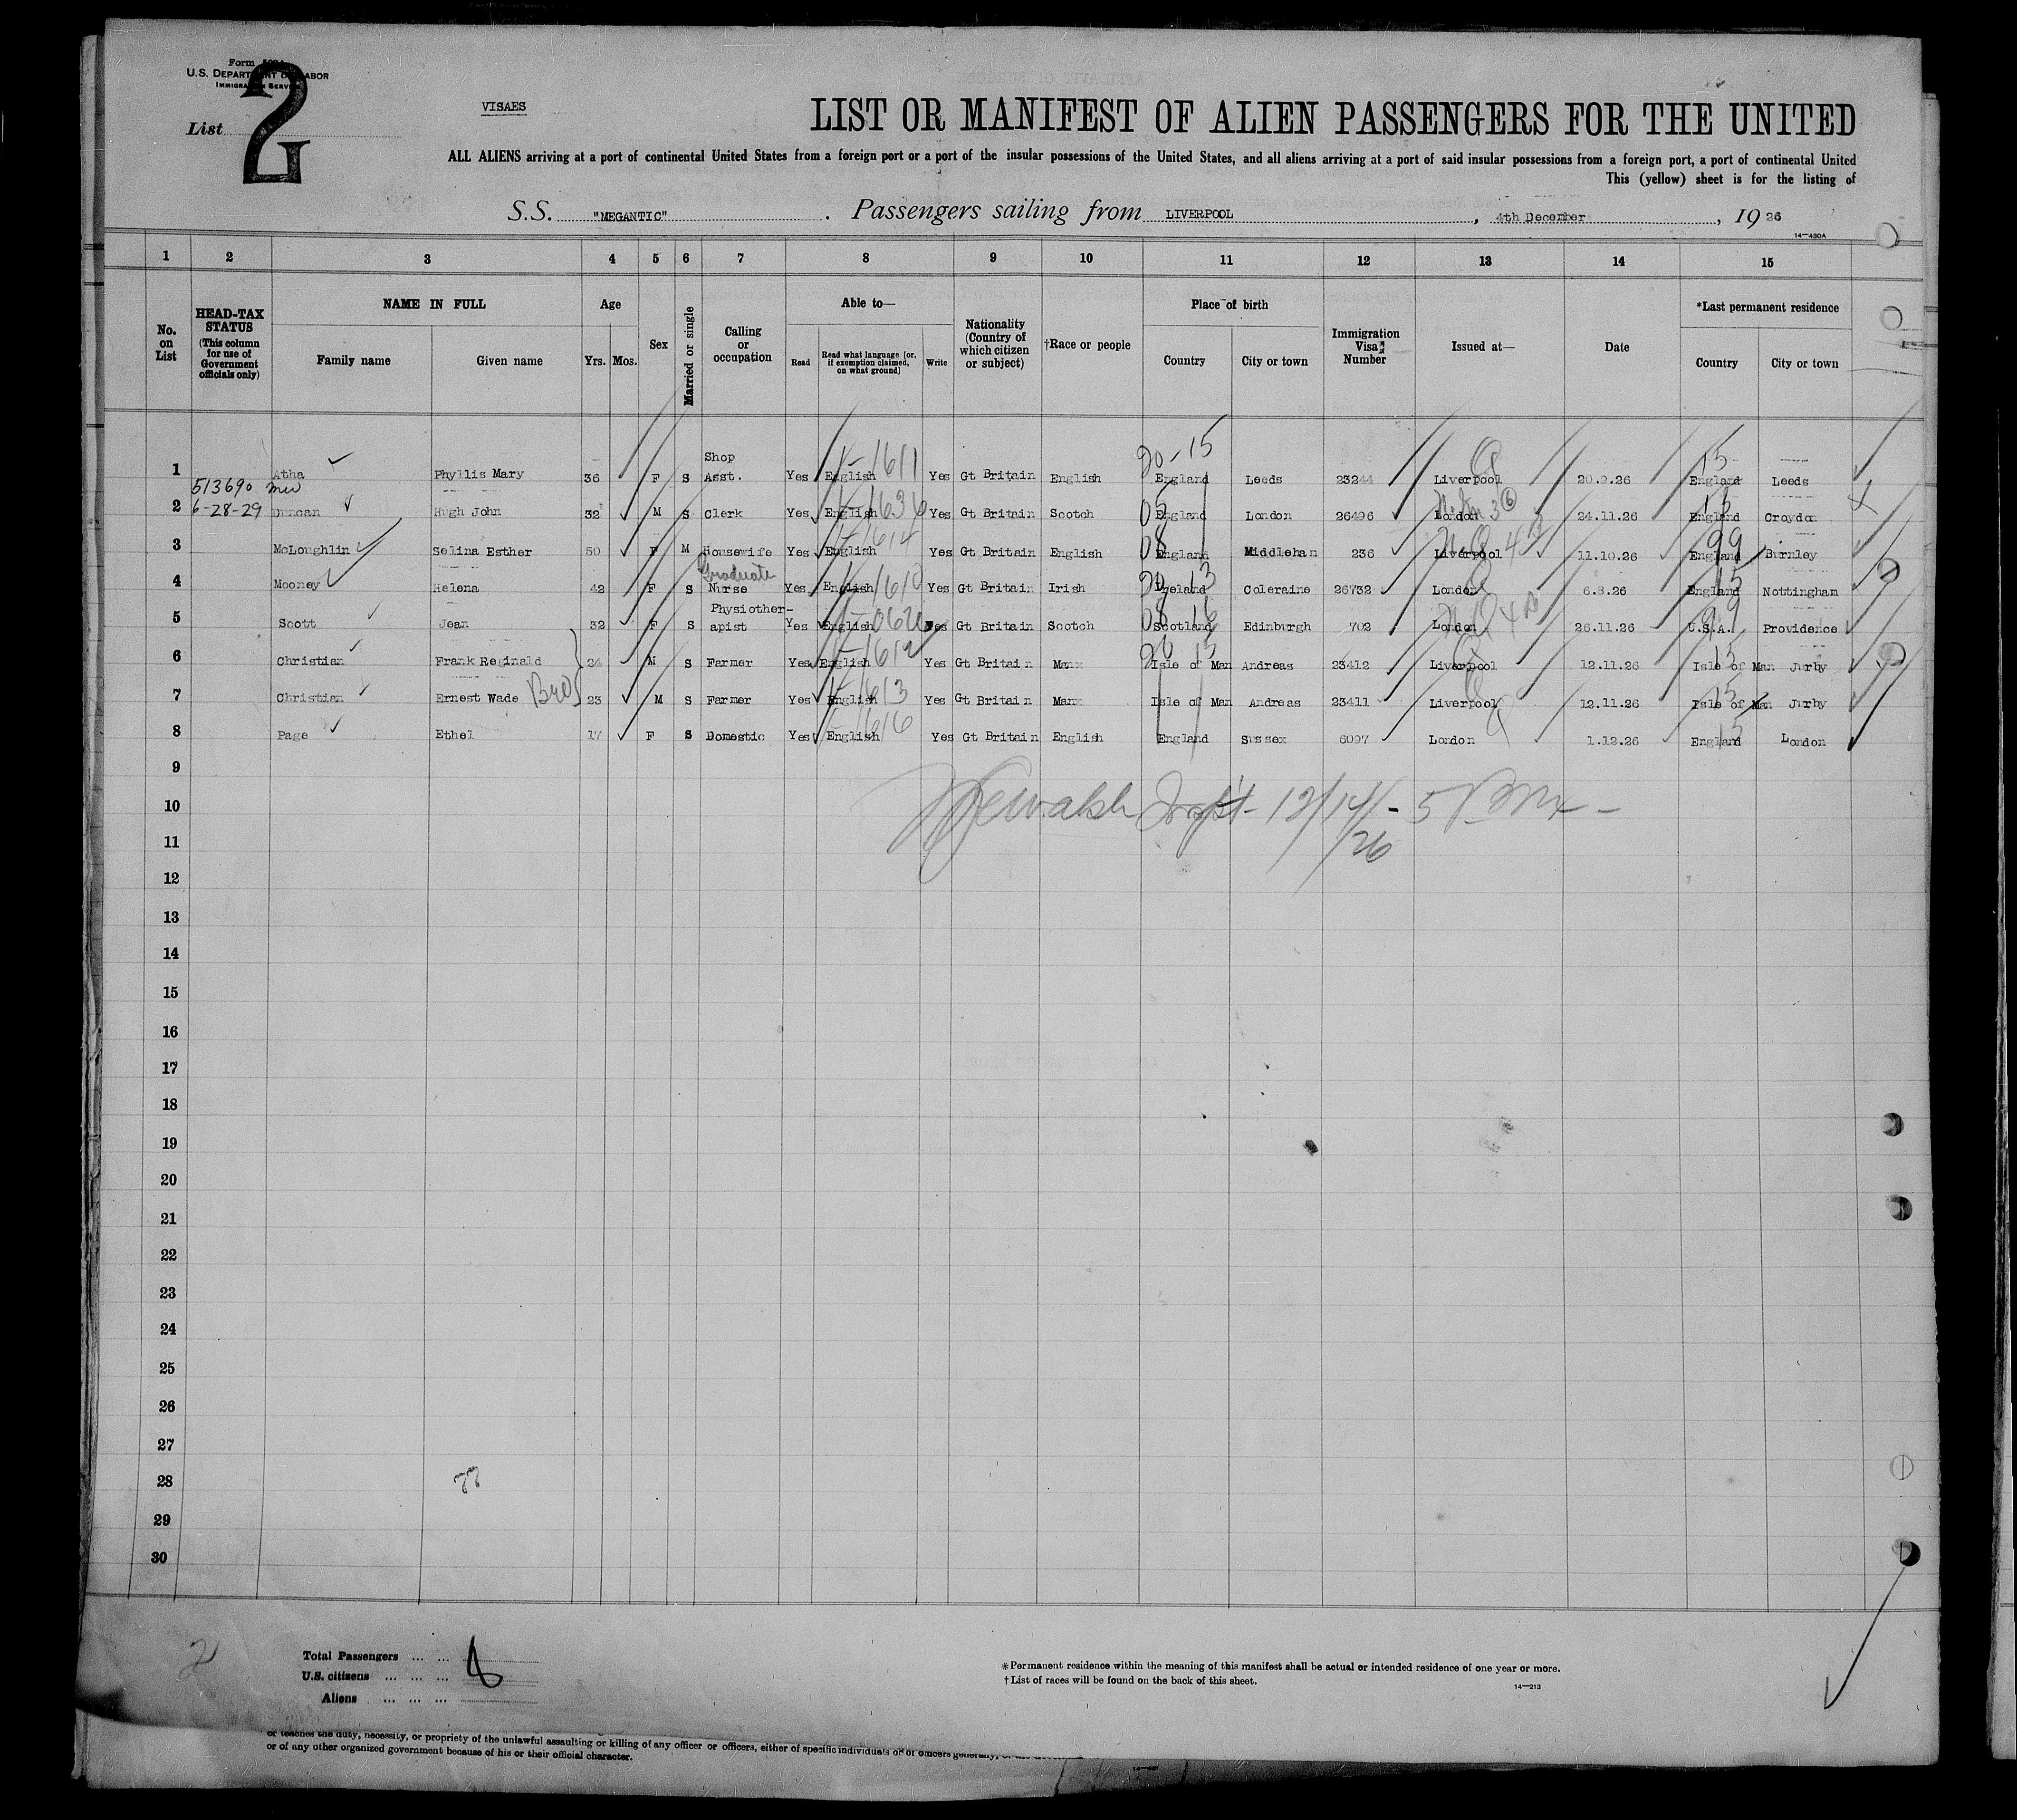 Form
U.S. DEPARTMENT OF LABOR
IMMIGRATION SERVICE
List 2
VISAES
LIST OR MANIFEST OF ALIEN PASSENGERS FOR THE UNITED
ALL ALIENS arriving at a port of continental United States from a foreign port or a port of the insular possessions of the United States, and all aliens arriving at a port of said insular possessions from a foreign port, a port of continental United
This (yellow) sheet is for the listing of
S.S. "MEGANTIC" . Passengers sailing from LIVERPOOL , 4th December , 1926
14—430A
1 2 3 4 5 6 7 8 9 10 11 12 13 14 15
No. on List
HEAD-TAX STATUS (This column for use of Government officials only)
NAME IN FULL
Family name Given name
Age
Yrs. Mos.
Sex
Married or single
Calling or occupation
Able to—
Read Read what language [or, if exemption claimed, on what ground] Write
Nationality (Country of which citizen or subject)
†Race or people
Place of birth
Country City or town
Immigration Visa Number
Issued at—
Date
*Last permanent residence
Country City or town
1 Atha Phyllis Mary 36 F S Shop Asst. Yes English 1611 Yes Gt Britain English 20-15 England Leeds 23244 Liverpool 20.9.26 15 England Leeds
513690
2 6-28-29 Duncan Hugh John 32 M S Clerk Yes English Yes Gt Britain Scotch 05 England London 26496 London 24.11.26 England Croydon
3 McLoughlin Selina Esther 50 F M Housewife Yes English 1614 Yes Gt Britain English 08 England Middleham 236 Liverpool 11.10.26 99 England Burnley
4 Mooney Helena 42 F S Graduate Nurse Yes English 1610 Yes Gt Britain Irish Ireland Coleraine 26732 London 6.8.26 15 England Nottingham
5 Scott Jean 32 F S Physiotherapist Yes English Yes Gt Britain Scotch 08 Scotland Edinburgh 702 London 26.11.26 99 U.S.A. Providence
6 Christian Frank Reginald 24 M S Farmer Yes English 1612 Yes Gt Britain Manx Isle of Man Andreas 23412 Liverpool 12.11.26 15 Isle of Man Jurby
7 Christian Ernest Wade Bros 23 M S Farmer Yes English 1613 Yes Gt Britain Manx Isle of Man Andreas 23411 Liverpool 12.11.26 15 Isle of Man Jurby
8 Page Ethel 17 F S Domestic Yes English 1616 Yes Gt Britain English England Sussex 6097 London 1.12.26 15 England London
9
10 Walsh Inspt- 12/14/26 - 5
11
12
13
14
15
16
17
18
19
20
21
22
23
24
25
26
27
28
29
30
Total Passengers ... ...
U.S. citizens ... ... ... 8
Aliens ... ... ...
*Permanent residence within the meaning of this manifest shall be actual or intended residence of one year or more.
†List of races will be found on the back of this sheet.
14—213
or teaches the duty, necessity, or propriety of the unlawful assaulting or killing of any officer or officers, either of specific individuals or of officers generally,
or of any other organized government because of his or their official character.